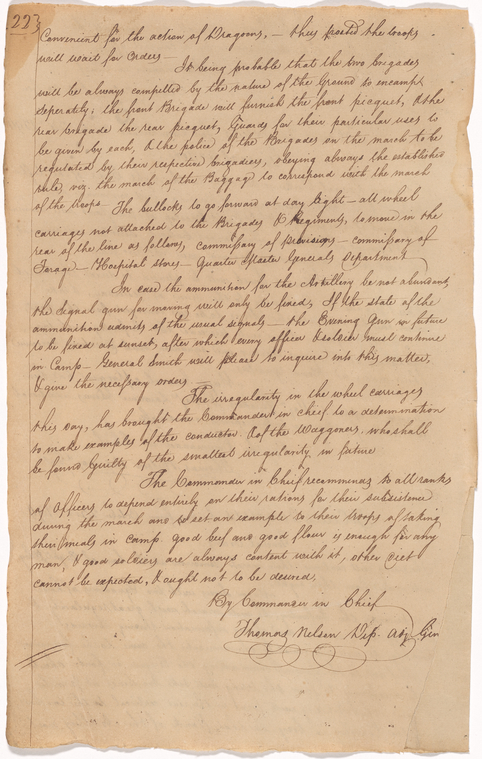 22
Convenient for the action of Dragoons, – thus posted the troops
will wait for Orders –
It being probable that the two brigades
will be always compelled by the nature of the Ground to encamp
seperately; the front Brigade will furnish the front picquet, & the
rear brigade the rear picquet, Guards for their particular uses to
be given by each, & the police of the Brigades on the march to be
regulated by their respective brigadiers, obeying always the established
rule, viz. the march of the Baggage to correspond with the march
of the troops –
The bullocks to go forward at day light – all wheel
carriages not attached to the Brigades & Regiments, to move in the
rear of the line as follows, commissary of Provisions – commissary of
Forage – Hospital stores – Quarter Master Generals Department
In case the ammunition for the Artillery be not abundant
the signal gun for moving will only be fired, If the state of the
ammunition admits of the usual signals – the Evening Gun in future
to be fired at sunset, after which every officer & soldier must continue
in Camp – General Smith will please to inquire into this matter,
& give the necessary orders
The irregularity in the wheel carriages
this day, has brought the Commander in chief to a determination
to make examples of the conductor & of the Waggoners who shall
be found Guilty of the smallest irregularity in future
The Commander in Chief recommends to all ranks
of Officers to depend entirely on their rations for their subsistence
during the march and to set an example to their troops of taking
their meals in Camp good beef and good flour is enough for any
man, & good soldiers are always content with it, other diet
cannot be expected, & ought not to be desired,
By Commander in Chief
Thomas Nelson Dep. Adj. Gen